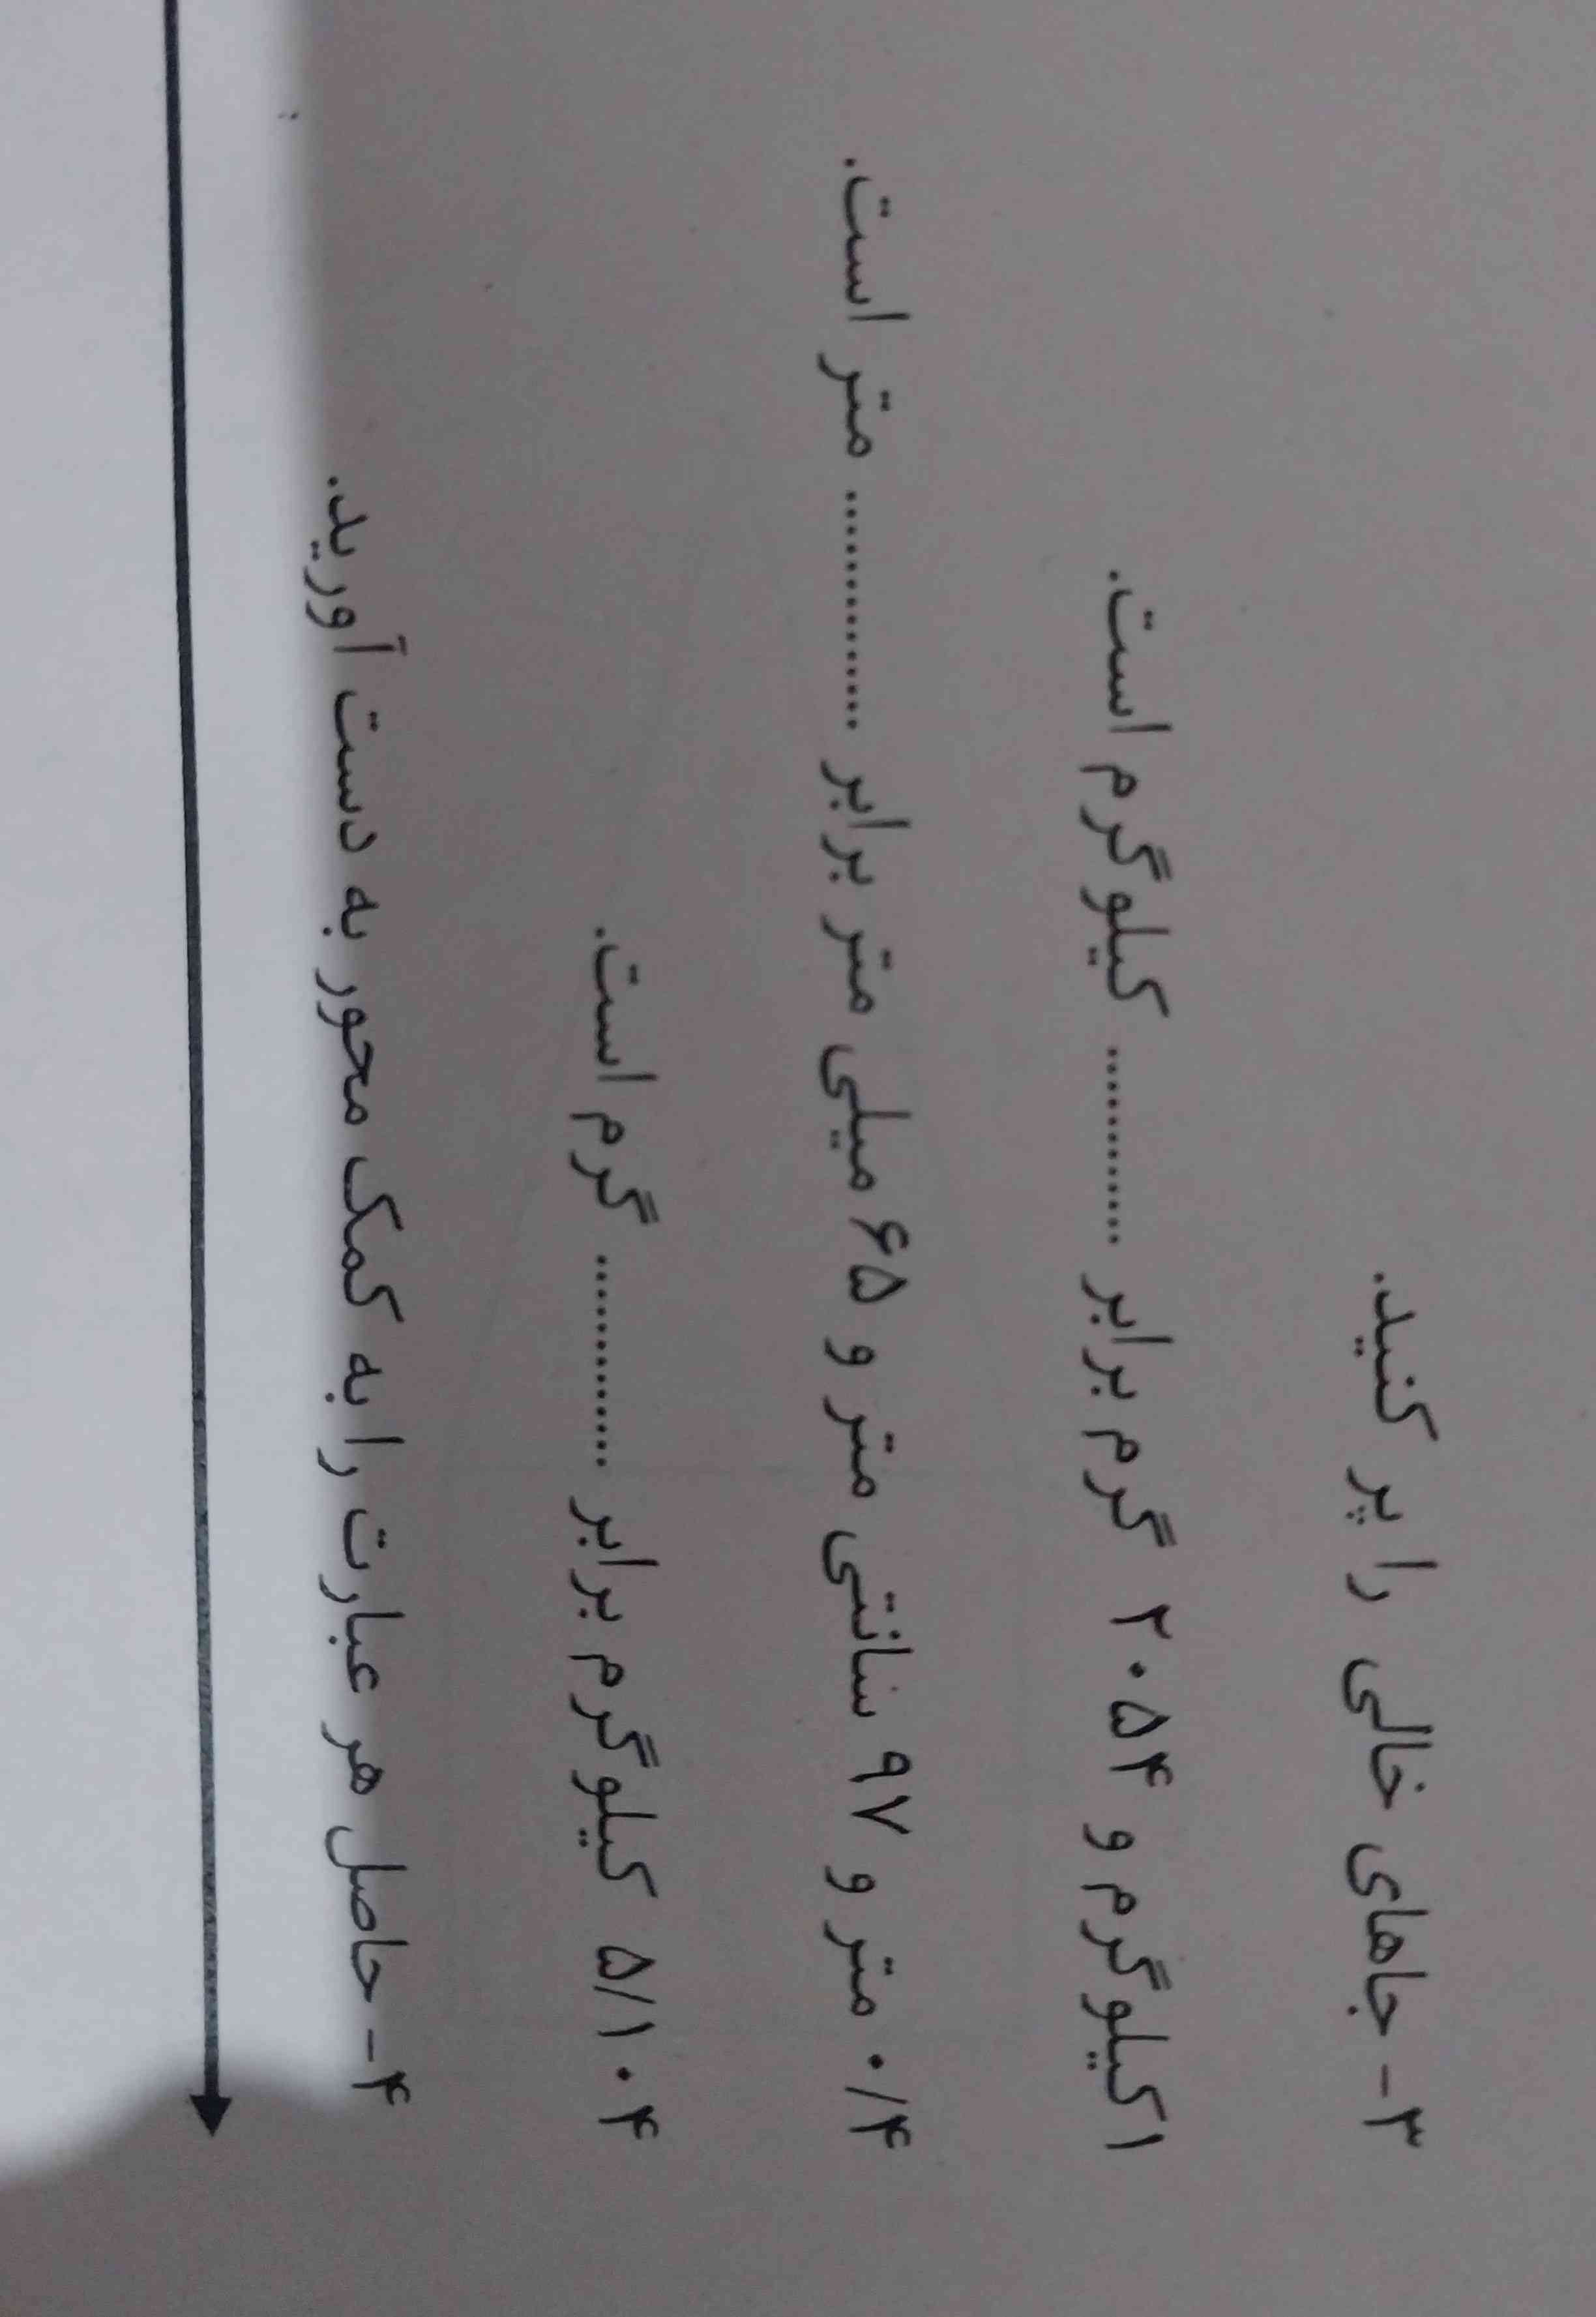 ۳- جاهای خالی را پر کنید.
۱کیلوگرم و ۲۰۵۴ گرم برابر ........... کیلوگرم است.
۰/۴ متر و ۹۷ سانتی متر و ۶۵ میلی متر برابر ............. متر است.
۵/۱۰۴ کیلوگرم برابر ........... گرم است.
۴- حاصل هر عبارت را به کمک محور به دست آورید.